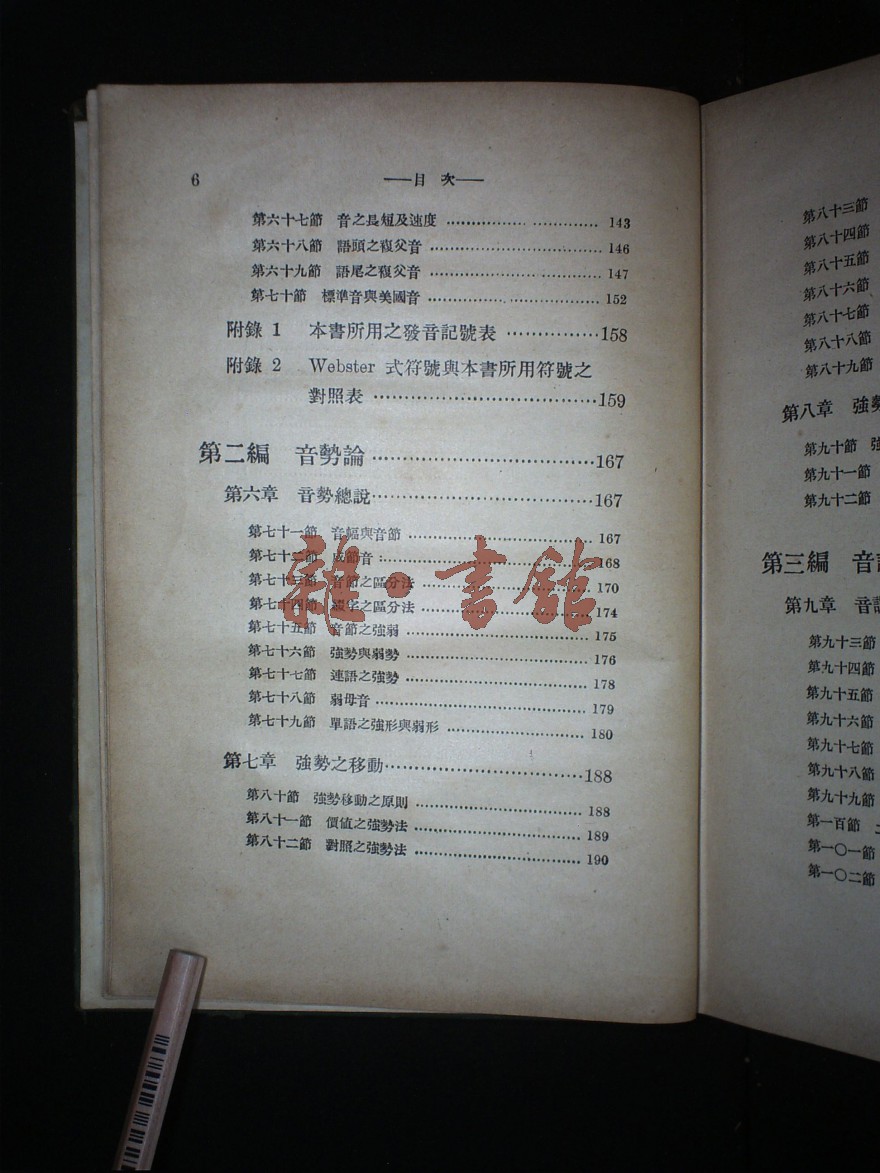 6
——目 次——
第六十七節 音之長短及速度 …………………… 143
第六十八節 語頭之複父音 …………………… 146
第六十九節 語尾之複父音 …………………… 147
第七十節 標準音與美國音 …………………… 152
附錄 1 本書所用之發音記號表 ……………158
附錄 2 Webster 式符號與本書所用符號之
對照表 ……………………………159
第二編 音勢論 ……………………………167
第六章 音勢總說……………………………167
第七十一節 音幅與音節 …………………… 167
第七十二節 節音 …………………… 168
第七十三節 音節之區分法 …………………… 170
第七十四節 綴字之區分法 …………………… 174
第七十五節 音節之強弱 …………………… 175
第七十六節 強勢與弱勢 …………………… 176
第七十七節 連語之強勢 …………………… 178
第七十八節 弱母音 …………………… 179
第七十九節 單語之強形與弱形 …………………… 180
第七章 強勢之移動……………………………188
第八十節 強勢移動之原則 …………………… 188
第八十一節 價值之強勢法 …………………… 189
第八十二節 對照之強勢法 …………………… 190
雜·書館
第八十三節
第八十四節
第八十五節
第八十六節
第八十七節
第八十八節
第八十九節
第八章 強勢
第九十節 強
第九十一節
第九十二節
第三編 音調
第九章 音調
第九十三節
第九十四節
第九十五節
第九十六節
第九十七節
第九十八節
第九十九節
第一百節
第一〇一節
第一〇二節